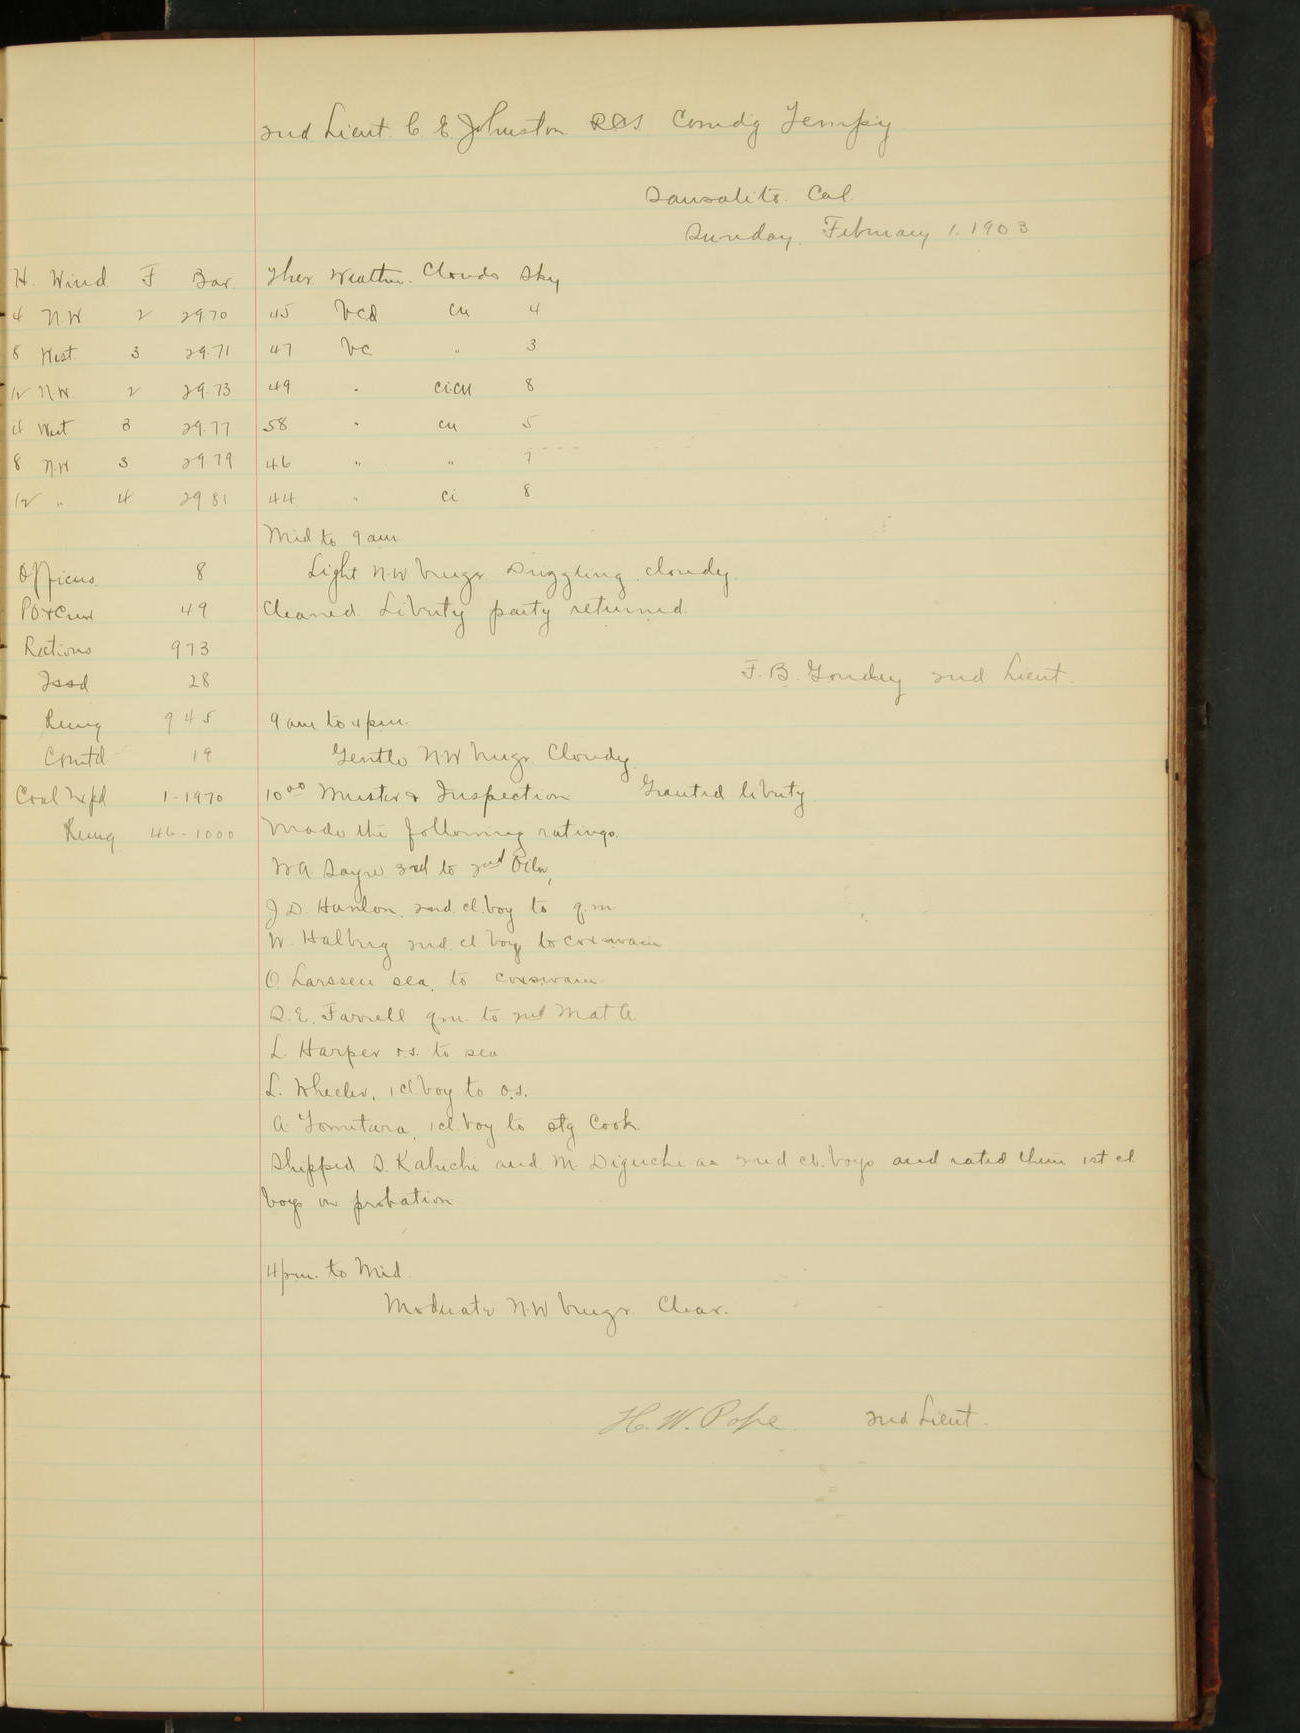 2nd Lieut. C. E. Johnston RCS Comdg Tempy
Sausalito. Cal.
Sunday, February 1. 1903
H. Wind F Bar. Ther Weather. Clouds Sky
4 N.W 2 2970 45 bcd cu 4
8 West 3 29.71 47 bc " 3
12 N.W. 2 29.73 49 " cicu 8
4 West 3 29.77 58 " cu 5
8 N.W 3 2979 46 " " 7
12 " 4 2981 44 " ci 8
Mid to 9 am
Officers 8 Light N.W brezs. Drizzling. cloudy
PO+Crew 49 Cleaned. Liberty party returned.
Rations 973
Issd 28 F. B. Goudey 2nd Lieut.
Remg 945 9 am to 4 pm.
Comtd 19 Gentle NW brezs. Cloudy
Coal Expd 1-1970 10⁰⁰ Muster & Inspection Granted liberty.
Remg 46-1000 Made the following ratings.
W.A. Sayre 3rd to 2nd Oiler,
J D. Hanlon. 2nd. cl. boy to q.m
W. Halberg 2nd. cl boy to coxswain
O. Larssen sea. to coxswain
S. E. Farrell qm. to 2nd Mat a
L. Harper o.s. to sea
L. Wheeler, 1 cl boy to o.s.
A Tomitara, 1cl. boy to stg Cook.
Shipped S. Kakuchi and M. Diguchi as 2nd cl. boys and rated them 1st cl
boys on probation
4 pm. to Mid.
Moderate N.W brezs. Clear.
H. W. Pope. 2nd Lieut.